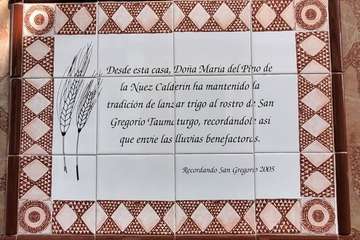 Desde esta casa, Doña María del Pino de
la Nuez Calderín ha mantenido la
tradición de lanzar trigo al rostro de San
Gregorio Taumaturgo, recordándole así
que envíe las lluvias benefactoras.
Recordando San Gregorio 2005